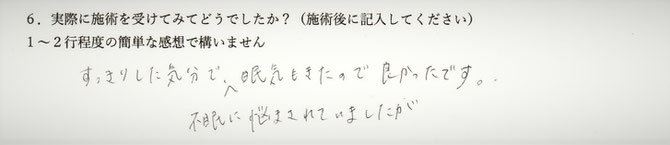 6．実際に施術を受けてみてどうでしたか？（施術後に記入してください）
1～2行程度の簡単な感想で構いません
すっきりした気分で、眠気もきたので良かったです。
不眠に悩まされていましたが